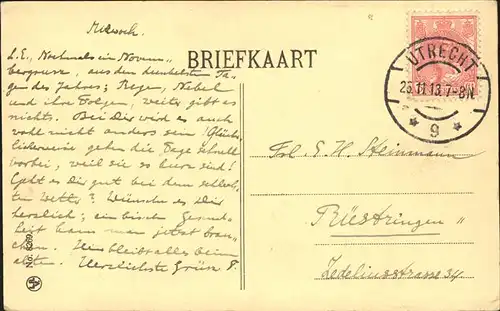 Mittwoch.
L. E., Nochmals ein Novem-
bergruss, aus den dunkelsten Ta-
gen des Jahres; Regen, Nebel
und ihre Folgen, weiter gibt es
nichts. Bei Dir wird es auch
wohl nicht anders sein! Glück-
licherweise gehen die Tage schnell
vorbei, weil sie so kurz sind!
Geht es Dir gut bei dem schlech-
ten Wetter? Wünsche es Dir
herzlich; ein bisch Gesund-
heit kann man jetzt brau-
chen. Hier bleibt alles beim
alten. Herzlichste Grüsse F.
BRIEFKAART
UTRECHT
25.11.13.7-8N
* 9 *
Frl. E. H. Steinmann
Rüstringen
Zedeliusstrasse 34
No. 629